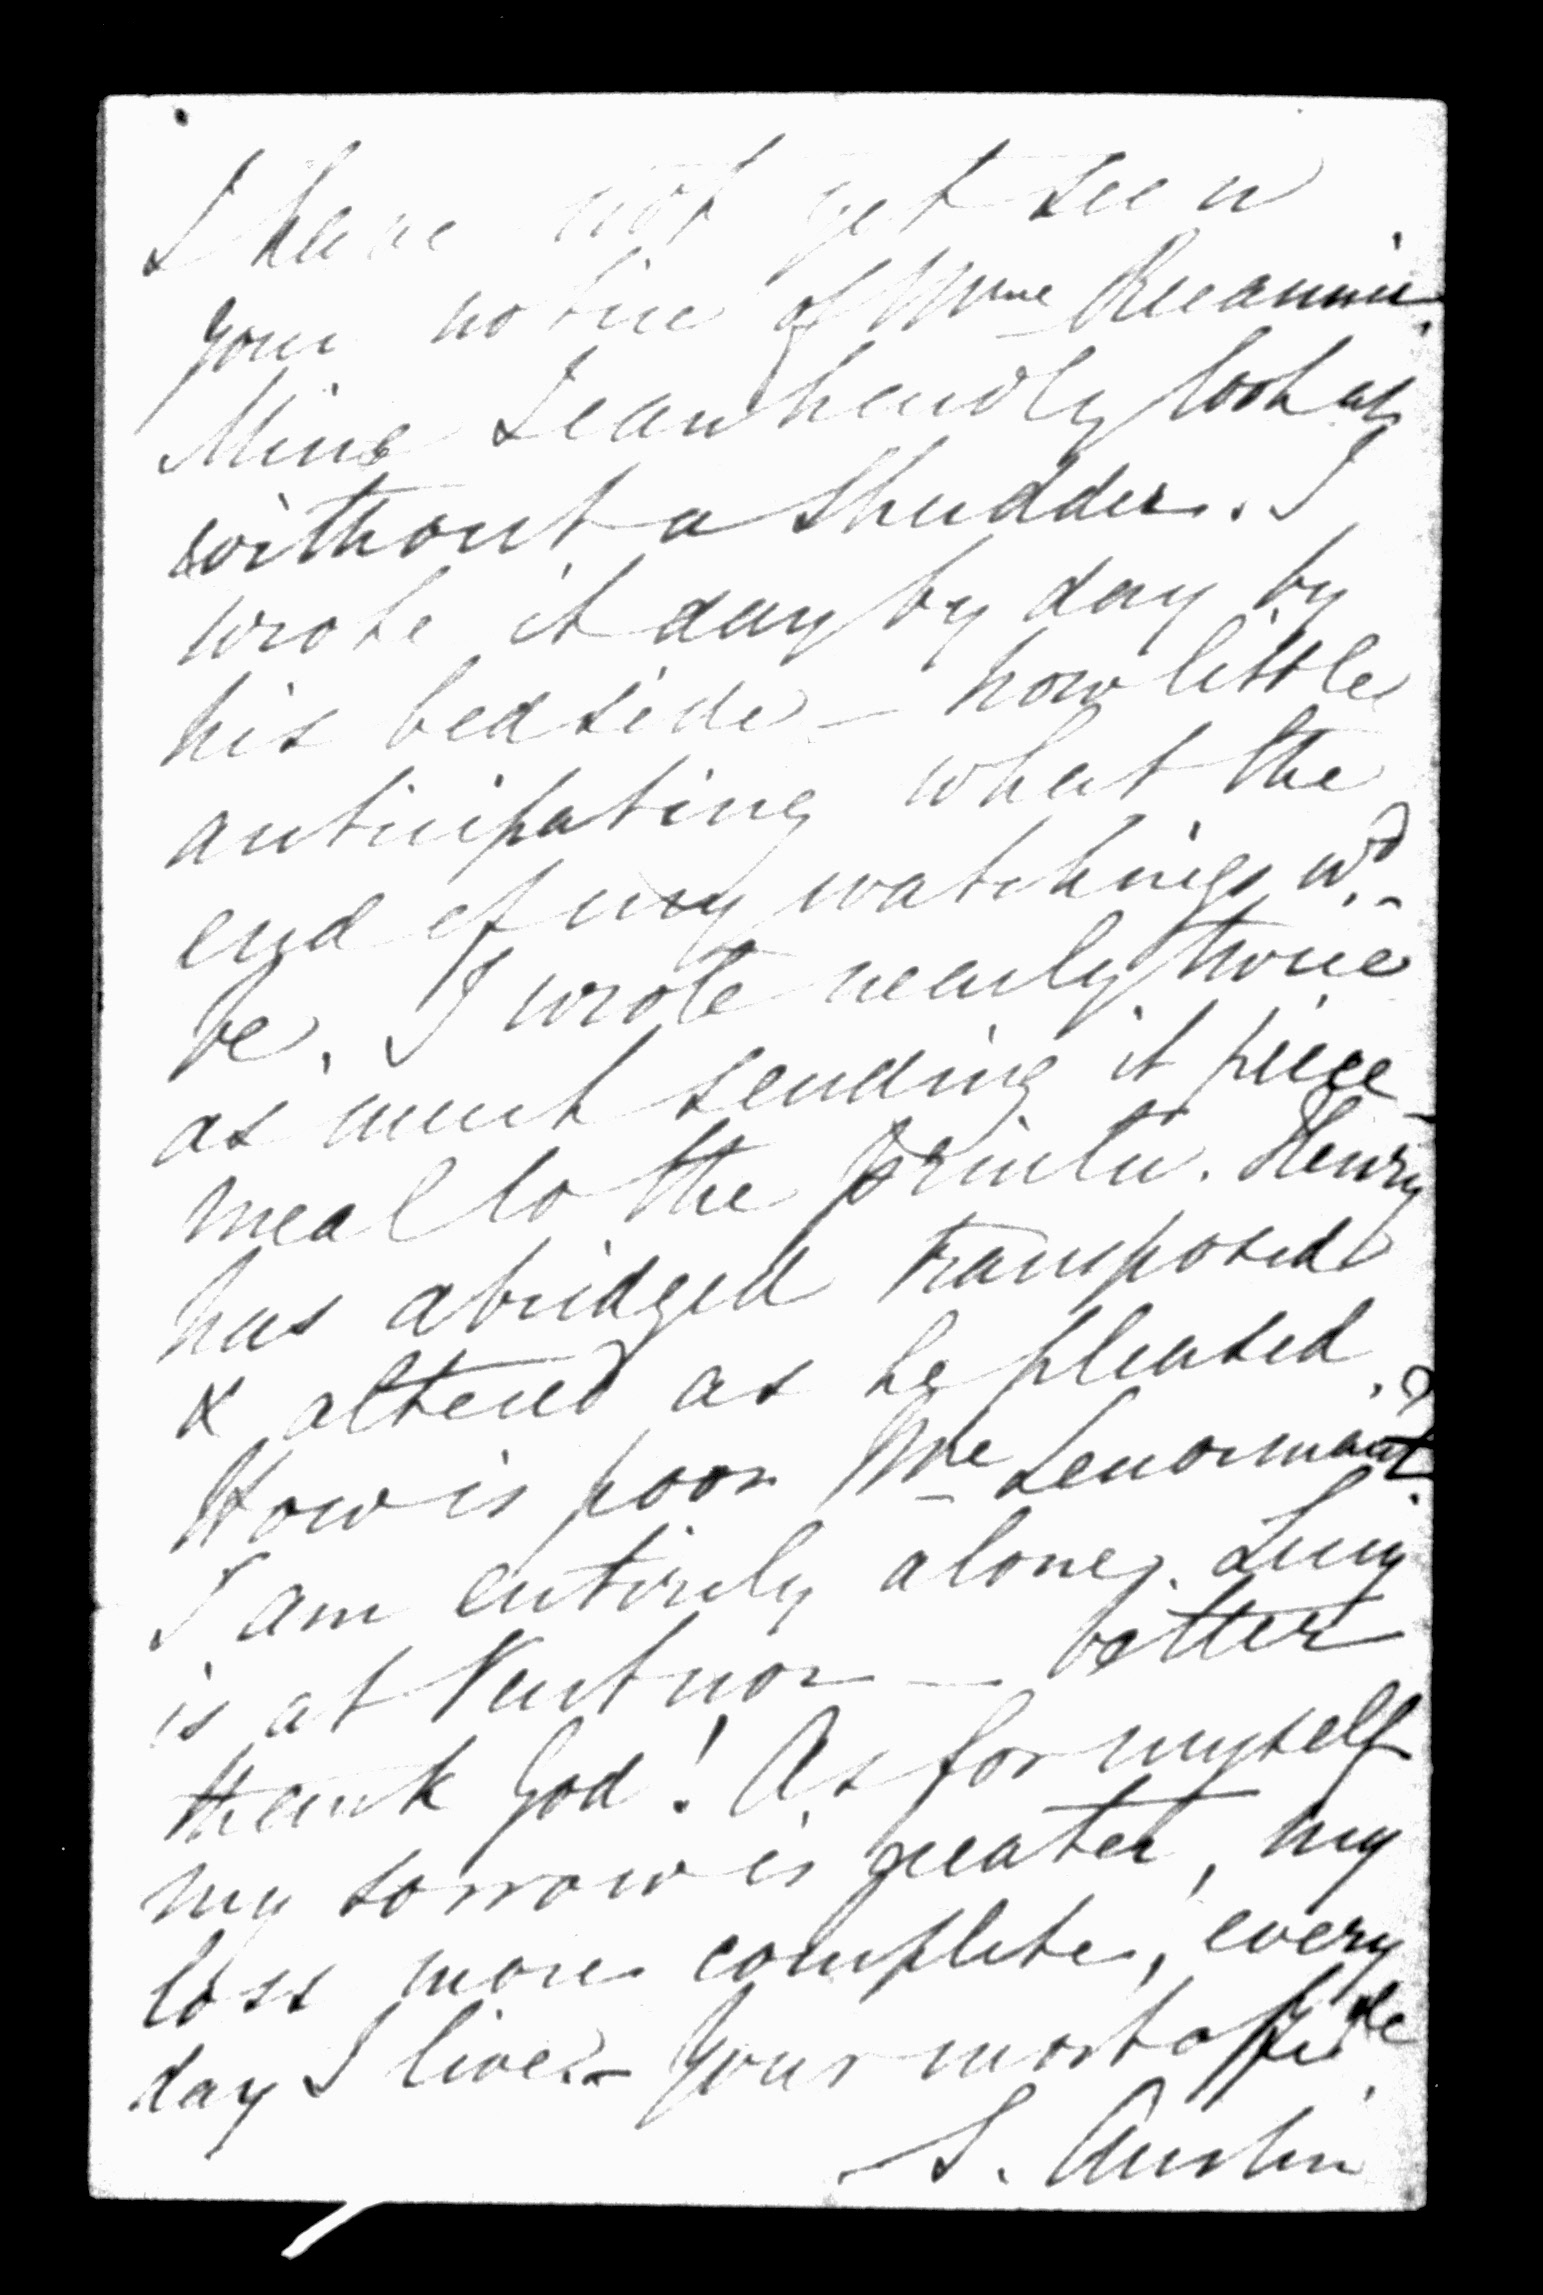 I have not yet seen
your notice of Mme Recamier.
Mine I can hardly look at
without a shudder. I
wrote it day by day by
his bedside – how little
anticipating what the
end of my watchings wd.
be. I wrote nearly twice
as much sending it piece-
meal to the printer. Henry
has abridged transposed
& altered as he pleased.
How is poor Mme Lenormant?
I am entirely alone. Lucy
is at Ventnor – better
thank God! As for myself
my sorrow is greater, my
loss more complete, every
day I live. – Your most affecte
S. Austin